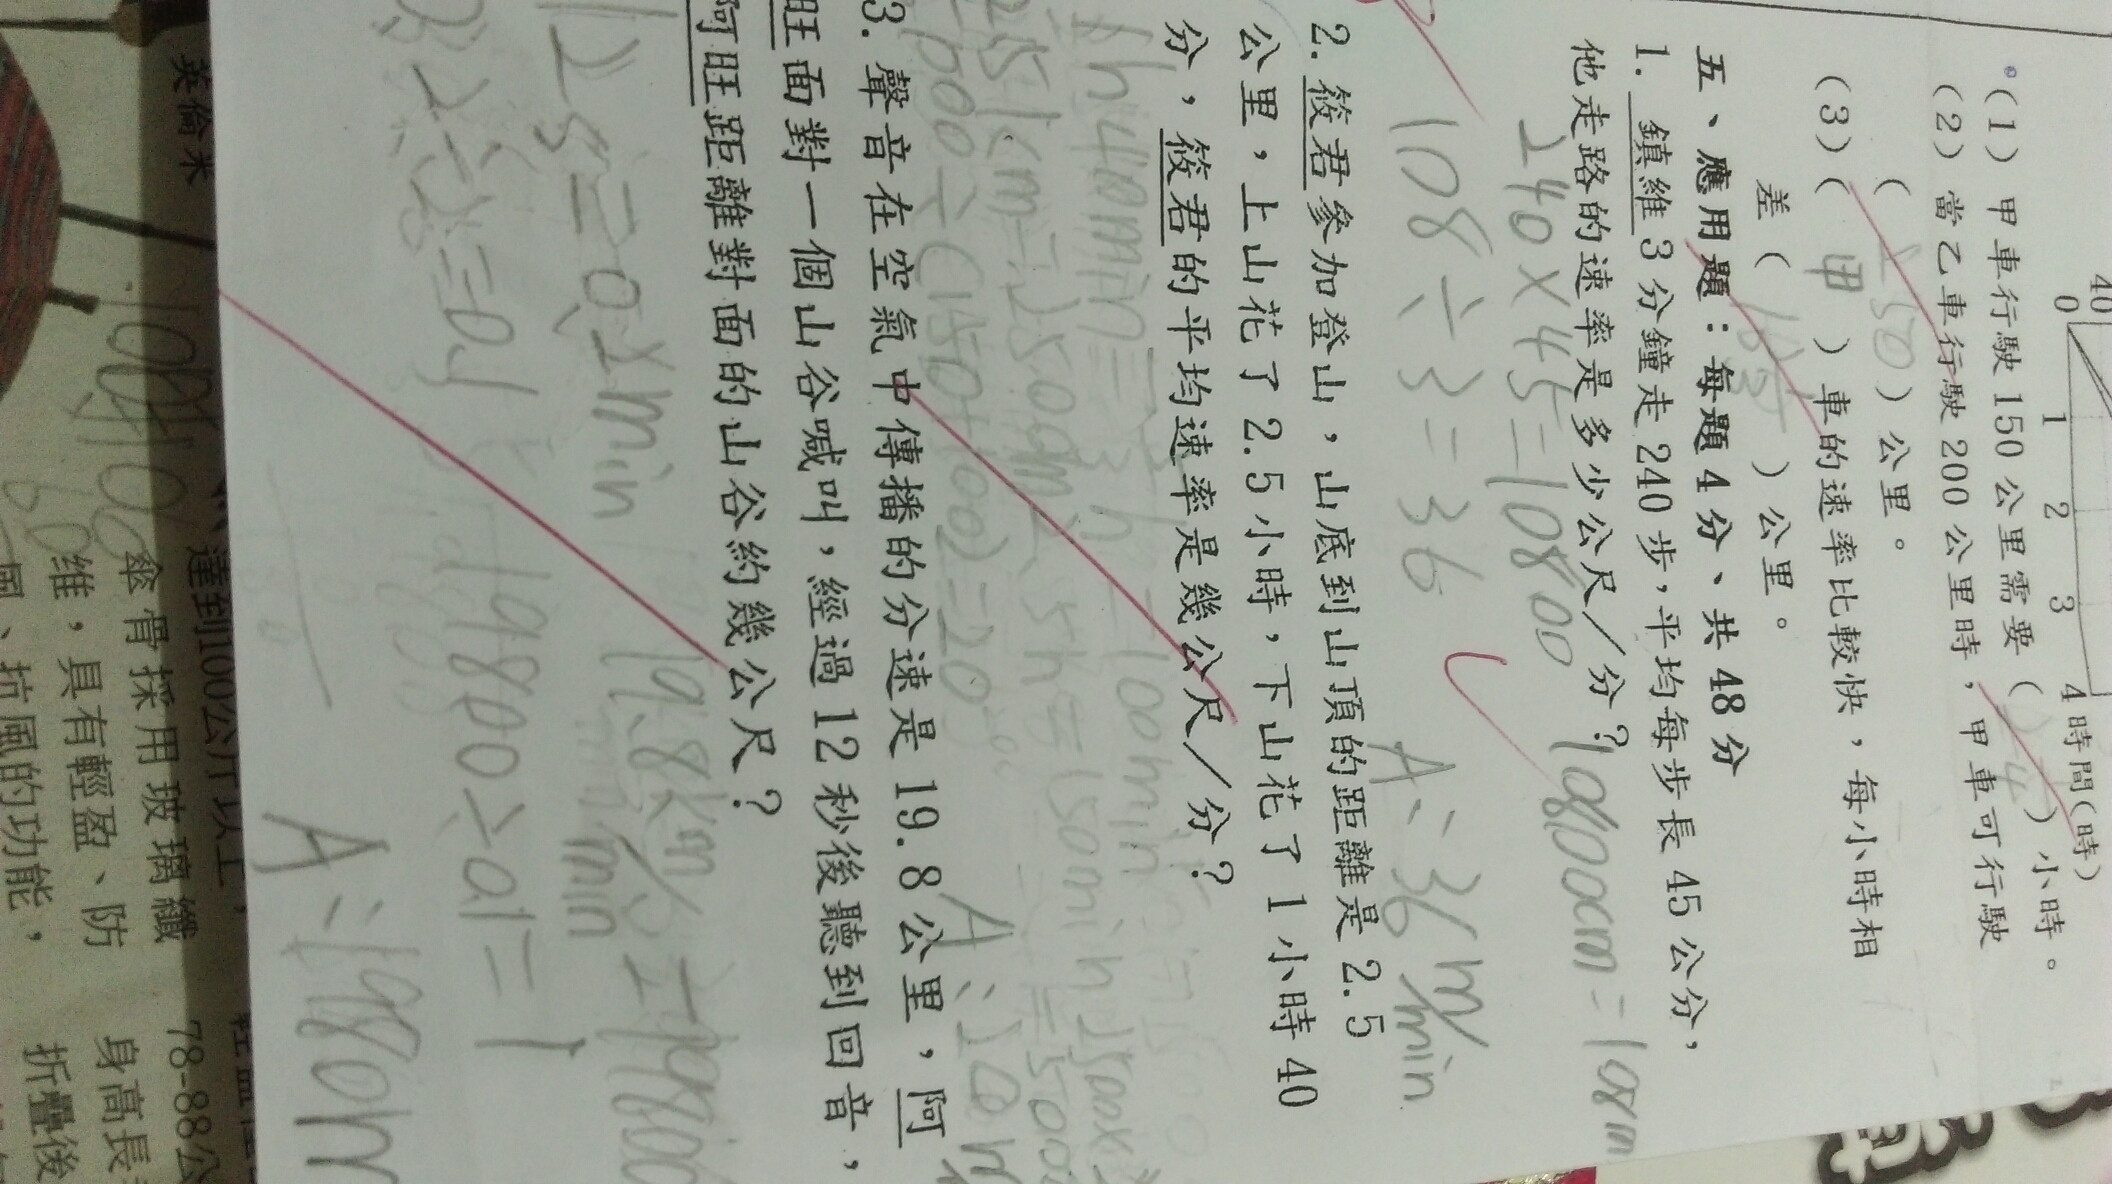 40
0 1 2 3 4 時間(時)
(1) 甲車行駛150公里需要( ) 小時。
(2) 當乙車行駛200公里時，甲車可行駛
( 250 ) 公里。
(3) ( 甲 ) 車的速率比較快，每小時相
差 ( ) 公里。
五、應用題：每題4分、共48分
1. 鎮維3分鐘走240步，平均每步長45公分，
他走路的速率是多少公尺/分？
240×45=10800 10800cm=108m
108÷3=36
A:36m/min
2. 筱君參加登山，山底到山頂的距離是2.5
公里，上山花了2.5小時，下山花了1小時40
分，筱君的平均速率是幾公尺/分？
1h40min= =100min
2.5km=2500m 2.5h=150min
÷(150+100)=20
A:20m
3. 聲音在空氣中傳播的分速是19.8公里，阿
旺面對一個山谷喊叫，經過12秒後聽到回音，
阿旺距離對面的山谷約幾公尺？
12s=0.2min
19.8km/min=19800
0.2÷2=0.1
19800×0.1=1
A:1980m
英倫米
達到100公斤以上，
傘骨採用玻璃纖
維，具有輕盈、防
風、抗風的功能，
78-88公
身高長
折疊後